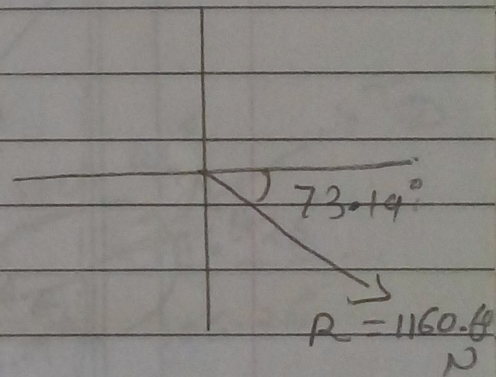 73.19°
R = 1160.
N